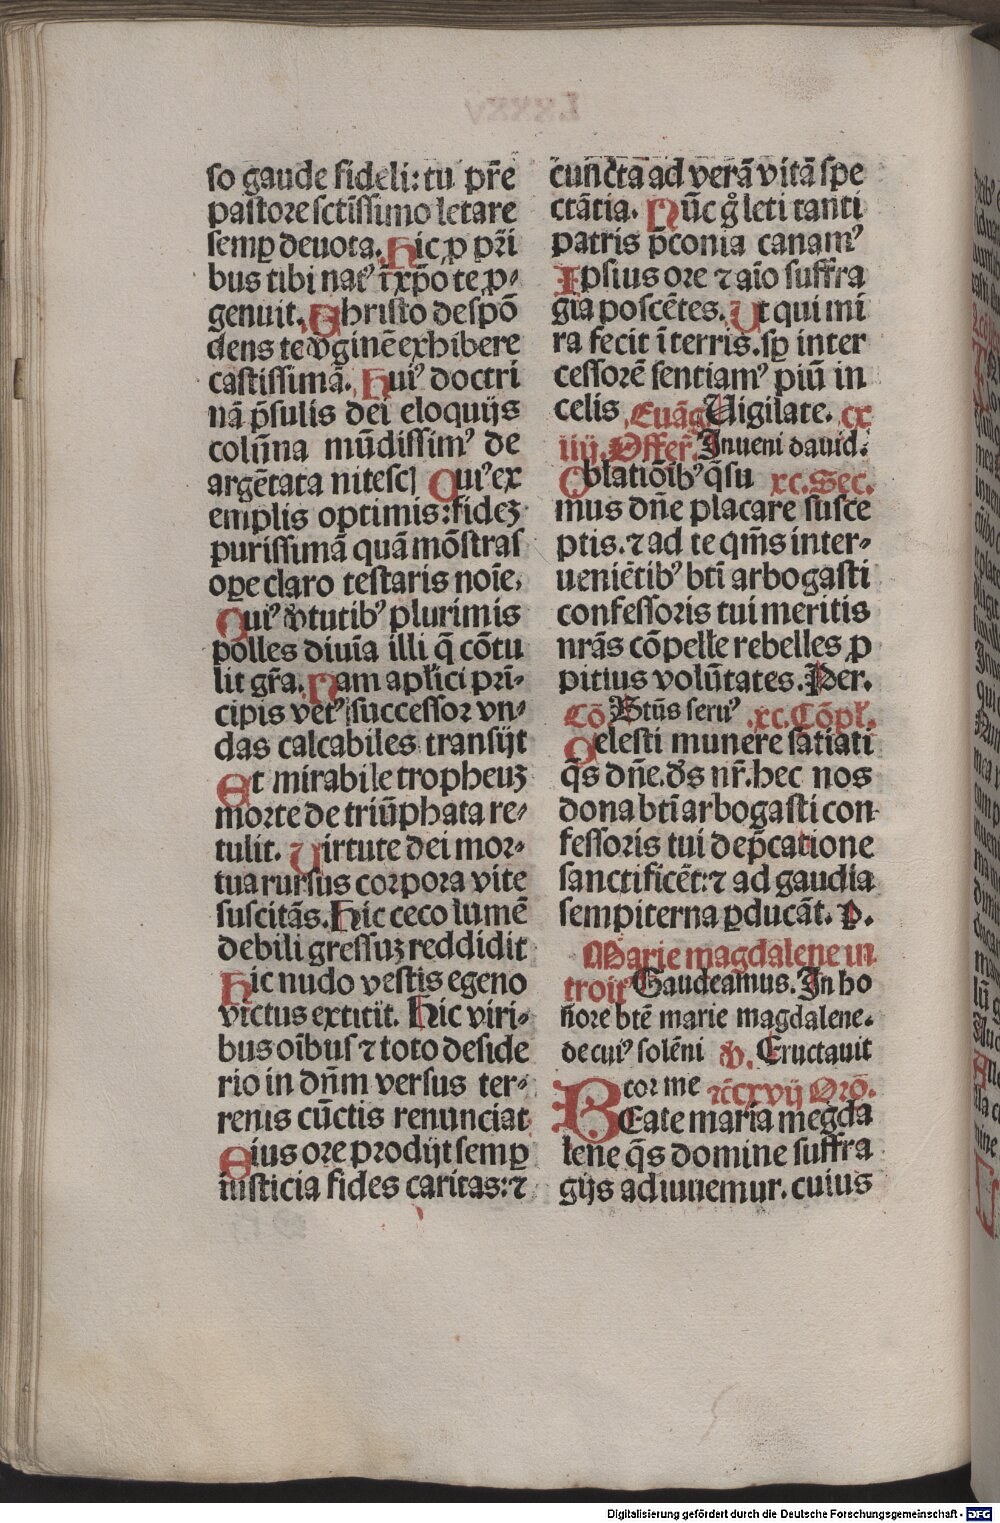 so gaude fideli: tu pr̄e
pastore sctissimo letare
semꝑ deuota. Hic ꝓ pr̄i
bus tibi nat⁹ ī xp̄o te ꝓ-
genuit. Christo despō
dens te v̄ginē exhibere
castissimā. Hui⁹ doctri
nā p̄sulis dei eloquijs
colūna mūdissim⁹ de
argētata nitesc̄
Qui⁹ ex
emplis optimis: fidez
purissimā quā mōstras
ope claro testaris noīe.
Qui⁹ v̄tutib⁹ plurimis
polles diuīa illi q̄ cōtu
lit gr̄a. Nam apl̄ici prī-
cipis vet⁹ successor vn-
das calcabiles transijt
Et mirabile tropheuz
morte de triūphata re-
tulit. Virtute dei mor-
tua rursus corpora vite
suscitās. Hic ceco lumē
debili gressuz reddidit
Hic nudo vestis egeno
victus extitit. Hic viri-
bus oībus ⁊ toto deside
rio in dn̄m versus ter-
renis cūctis renunciat
Eius ore prodijt semꝑ
iusticia fides caritas: ⁊
cuncta ad verā vitā spe
ctātia. Nūc g̊ leti tanti
patris p̄conia canam⁹
Ipsius ore ⁊ aīo suffra
gia poscētes. Ut qui mi
ra fecit ī terris. sꝑ inter
cessorē sentiam⁹ piū in
celis Euāg Uigilate. cx
iiij. Offer̄. Inueni dauid.
Oblatiōīb⁹ q̄su xc. Sec.
mus dn̄e placare susce
ptis. ⁊ ad te qm̄s inter-
ueniētib⁹ bt̄i arbogasti
confessoris tui meritis
nrās cōpelle rebelles ꝓ
pitius volūtates. Per.
Cō. Btūs seru⁹ xc. Cōpl̄.
Celesti munere satiati
q̄s dn̄e. ds̄ nr̄. hec nos
dona bt̄i arbogasti con
fessoris tui dep̄catione
sanctificēt: ⁊ ad gaudia
sempiterna ꝑducāt. P.
Marie magdalene in
troit⁹ Gaudeamus. In ho
nore btē marie magdalene.
de cui⁹ solēni v. Eructauit
cor me rc̄cxvij Orō.
BEate maria megda
lene q̄s domine suffra
gijs adiuuemur. cuius
Digitalisierung gefördert durch die Deutsche Forschungsgemeinschaft - DFG